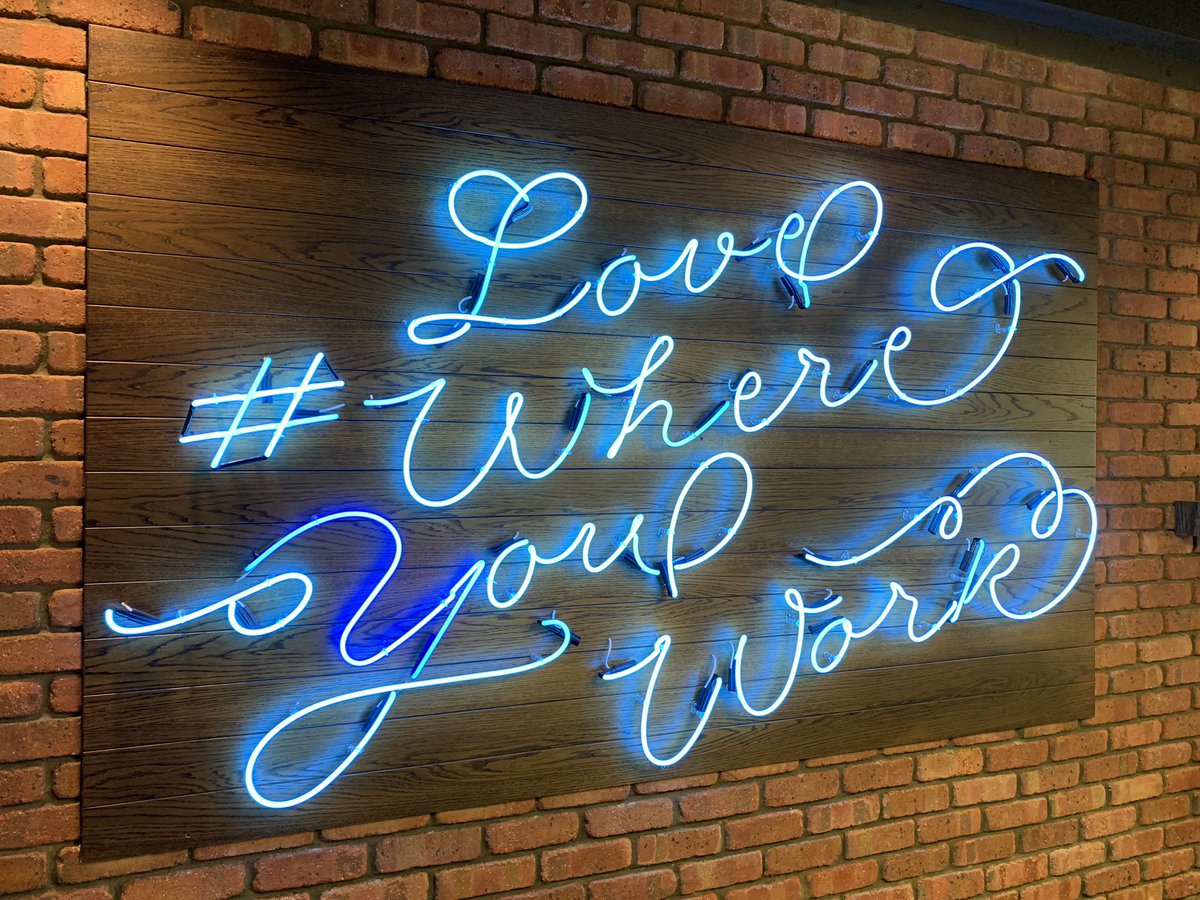 Love
#Where
You
Work